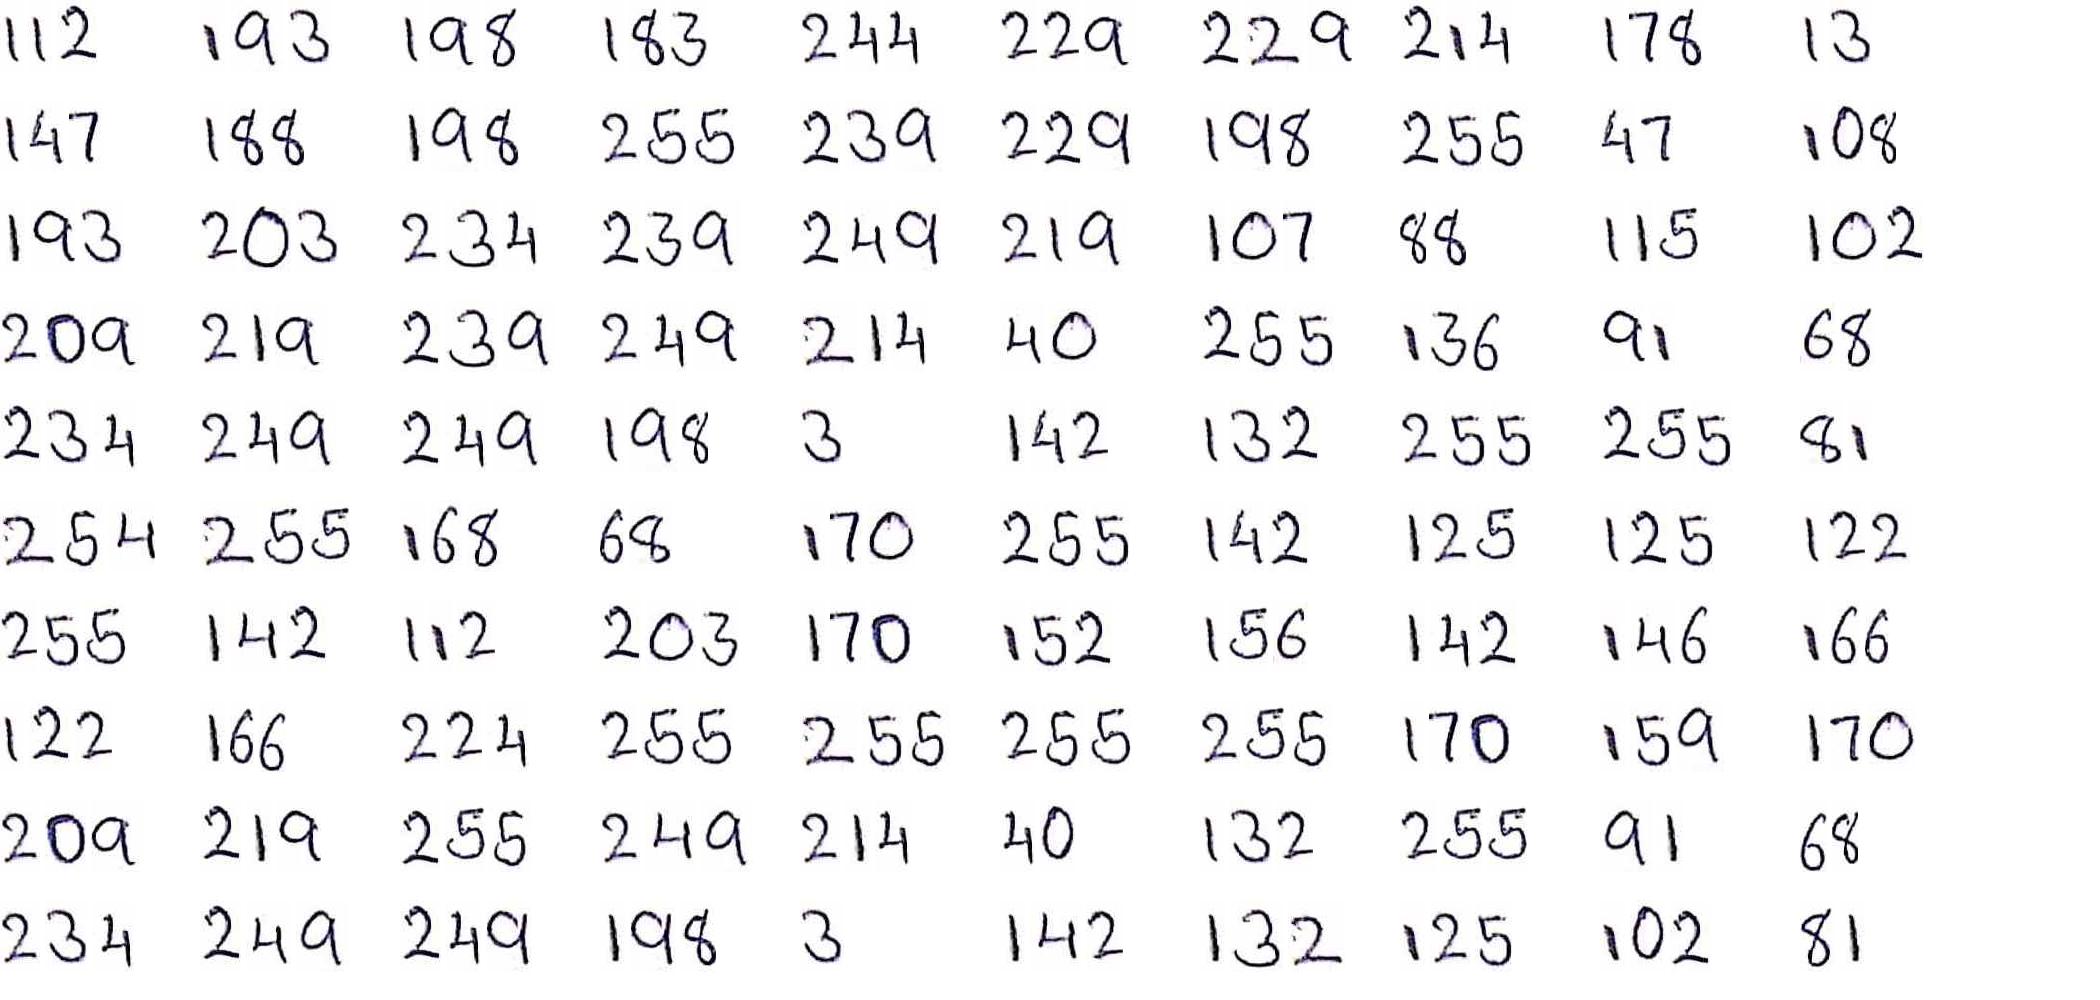 112 193 198 183 244 229 229 214 178 13
147 188 198 255 239 229 198 255 47 108
193 203 234 239 249 219 107 88 115 102
209 219 239 249 214 40 255 136 91 68
234 249 249 198 3 142 132 255 255 81
254 255 168 68 170 255 142 125 125 122
255 142 112 203 170 152 156 142 146 166
122 166 224 255 255 255 255 170 159 170
209 219 255 249 214 40 132 255 91 68
234 249 249 198 3 142 132 125 102 81